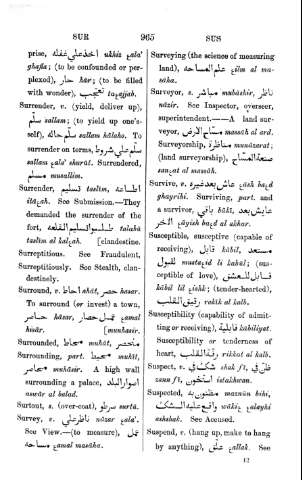 SUR 965 SUS
prise, أخذ علي غفله ukhiz ạala'
ghafla; (to be confounded or per-
plexed), حار har; (to be filled
with wonder), تعجب taạajjab.
Surrender, v. (yield, deliver up),
سلم sallam; (to yield up one's-
self), سلم حاله sallam ḥálaho. To
surrender on terms, سلم علي شروط
sallam ạala' shurút. Surrendered,
مسلم musallim.
Surrender, تسليم taslim, اطاعة
itáạah. See Submission.—They
demanded the surrender of the
fort, طلبوا تسليم القلعة talabú
taslim al ḳalạah. [clandestine.
Surreptitious. See Fraudulent,
Surreptitiously. See Stealth, clan-
destinely.
Surround, v. احاط aḥát, حصر hasar.
To surround (or invest) a town,
حاصر hásar, عمل حصار ạamal
ḥisár. [munhasir.
Surrounded, محاط muhát, منحصر
Surrounding, part. محيط muhít,
محاصر muhásir. A high wall
surrounding a palace, اسوار البلد
aswár al balad.
Surtout, s. (over-coat), سرطو surtú.
Survey, v. ناظر علي názar ạala'.
See View.—(to measure), عمل
مساحه ạamal masáha.
Surveying (the science of measuring
land), علم المساحه ạilm al ma-
sáha.
Surveyor, s. مباشر mubáshir, ناظر
názir. See Inspector, overseer,
superintendent.——A land sur-
veyor, مساح الارض massáh al ard.
Surveyorship, مناظرة munázarat;
(land surveyorship), صنعة المساح
sanạat al massáh.
Survive, v. عاش بعد غيره ạásh baạd
ghayrihi. Surviving, part. and
a survivor, باقي báḳi, عايش بعد
الآخر ạáyish baạd al akhar.
Susceptible, susceptive (capable of
receiving), قابل ḳábil, مستعد
لقبول mustaạid li ḳabúl; (sus-
ceptible of love), قابل للعشق
ḳábil lil ạishḳ; (tender-hearted),
رقيق القلب raḳíḳ al ḳalb.
Susceptibility (capability of admit-
ting or receiving), قابلية ḳábiliyat.
Susceptibility or tenderness of
heart, رقة القلب riḳḳat al ḳalb.
Suspect, v. شك في shak fí, ظن في
zann fí, استخون istakhwan.
Suspected, مظنون به maznún bihi,
واقع عليه الشك wáḳiạ ạlayhi
ashshak. See Accused.
Suspend, v. (hang up, make to hang
by anything), علق ạallaḳ. See
12